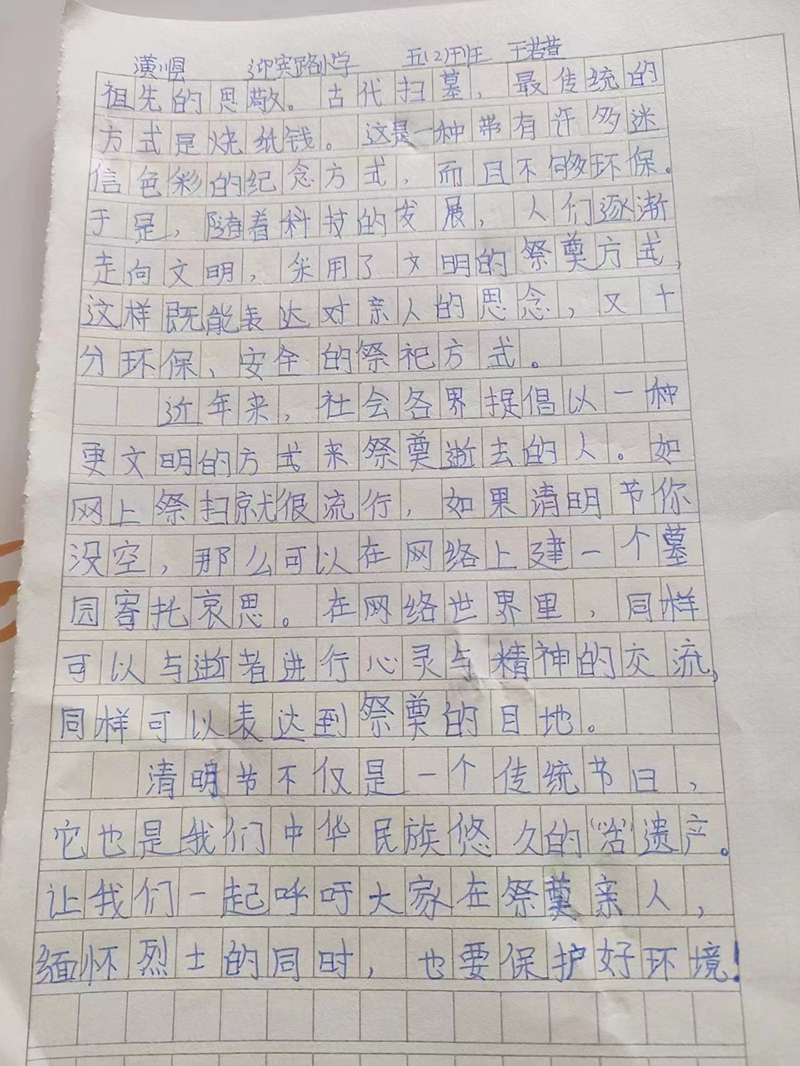 潢川县 迎宾路小学 五(2)班 王若萱
祖先的思敬。古代扫墓，最传统的
方式是烧纸钱。这是一种带有许多迷
信色彩的纪念方式，而且不够环保。
于是，随着科技的发展，人们逐渐
走向文明，采用了文明的祭奠方式，
这样既能表达对亲人的思念，又十
分环保、安全的祭祀方式。
近年来，社会各界提倡以一种
更文明的方式来祭奠逝去的人。如
网上祭扫就很流行，如果清明节你
没空，那么可以在网络上建一个墓
园寄托哀思。在网络世界里，同样
可以与逝者进行心灵与精神的交流，
同样可以表达到祭奠的目地。
清明节不仅是一个传统节日，
它也是我们中华民族悠久的“活”遗产。
让我们一起呼吁大家在祭奠亲人，
缅怀烈士的同时，也要保护好环境！